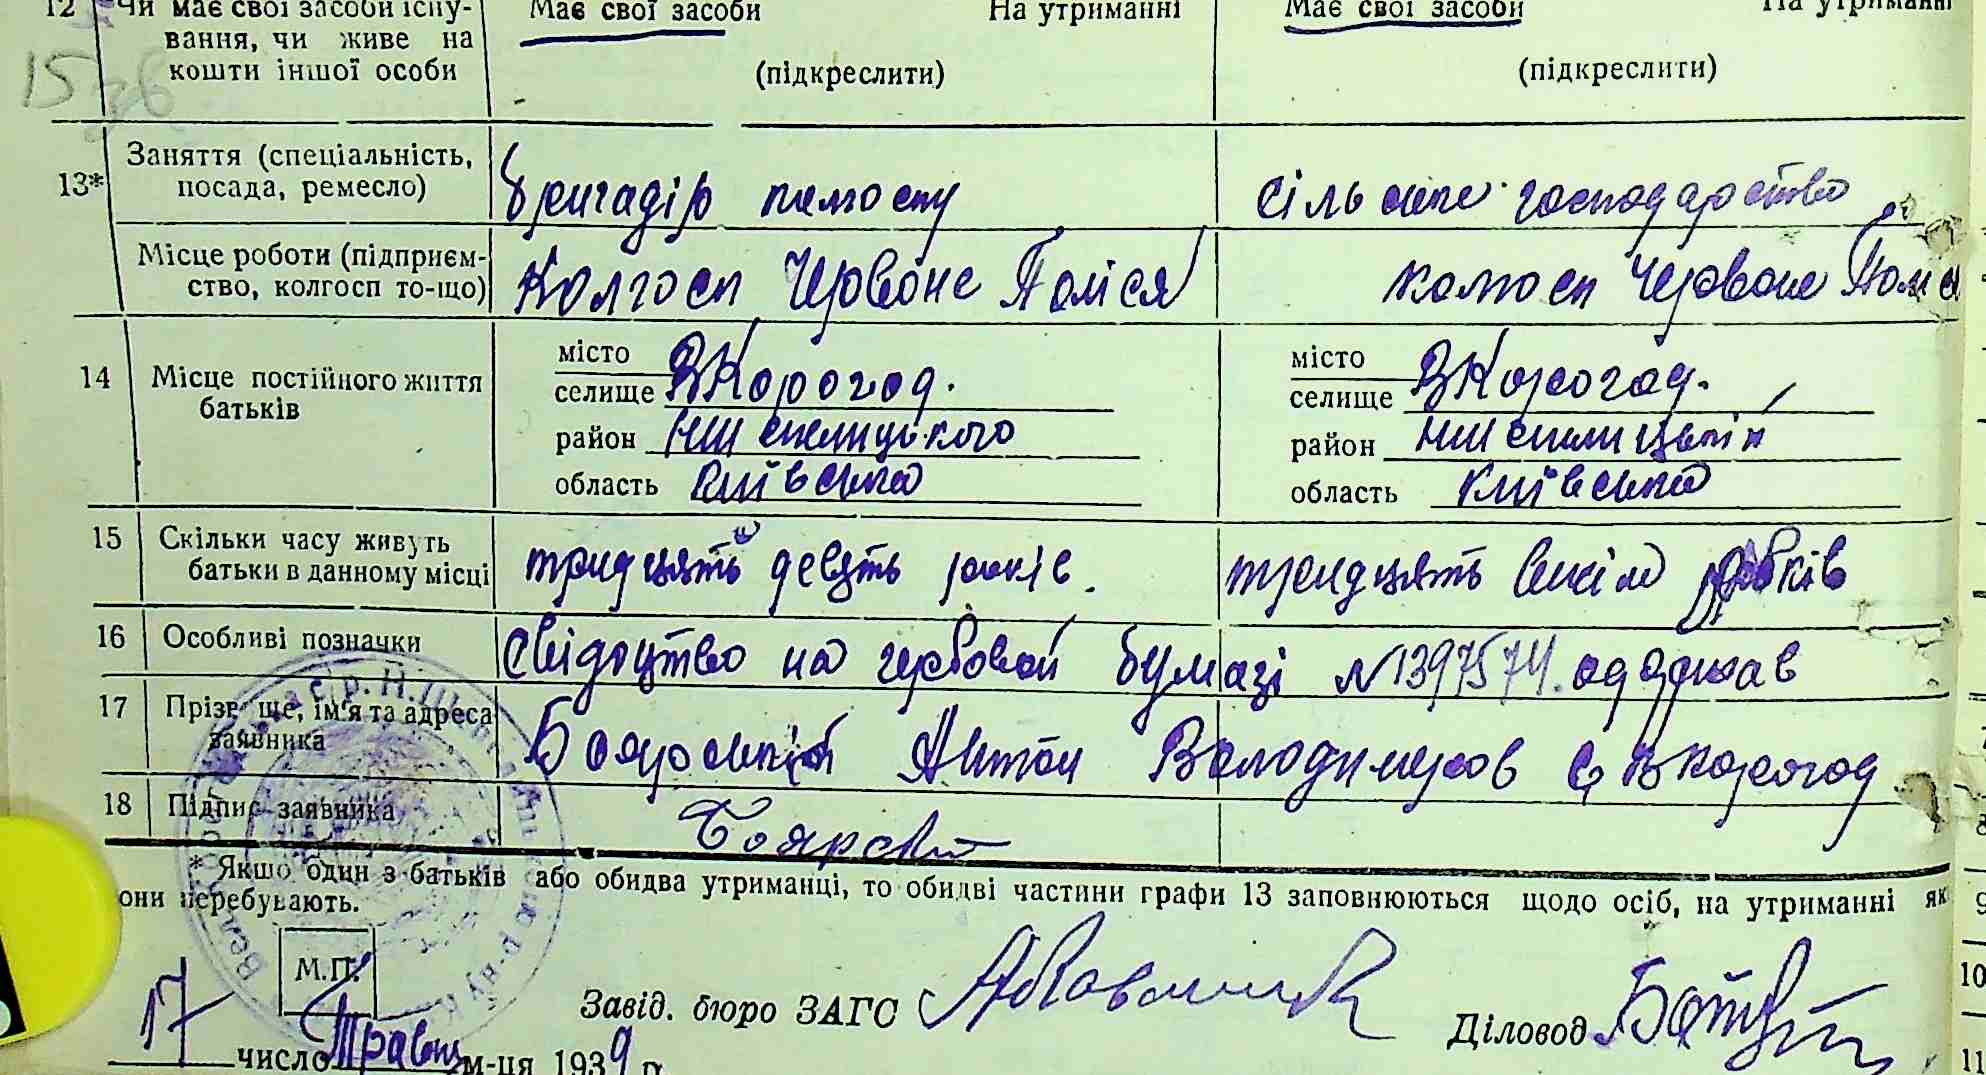 12 Чи має свої засоби існу- Має свої засоби На утриманні Має свої засоби На утриманні
вання, чи живе на
кошти іншої особи (підкреслити) (підкреслити)
15
Заняття (спеціальність,
13* посада, ремесло) бригадір сільське господарство
Місце роботи (підприєм-
ство, колгосп то-що) Колгосп Червоне Полісся колгосп Червоне
14 Місце постійного життя
батьків
місто місто
селище ВКорогод. селище ВКорогод.
район район
область Київська область Київська
15 Скільки часу живуть
батьки в данному місці тридцять девять років. тридцять вісім років
16 Особливі позначки Свідоцтво на гербовой бумазі №1397574. одержав
17 Прізвище, ім'я та адреса
заявника Боярський Антон Володимиров с. Вкорогод
18 Підпис заявника Боярский
* Якщо один з батьків або обидва утриманці, то обидві частини графи 13 заповнюються щодо осіб, на утриманні як
они перебувають.
М.П.
Завід. бюро ЗАГС Діловод
17 число Травня м-ця 1939 г.
8
9
10
11